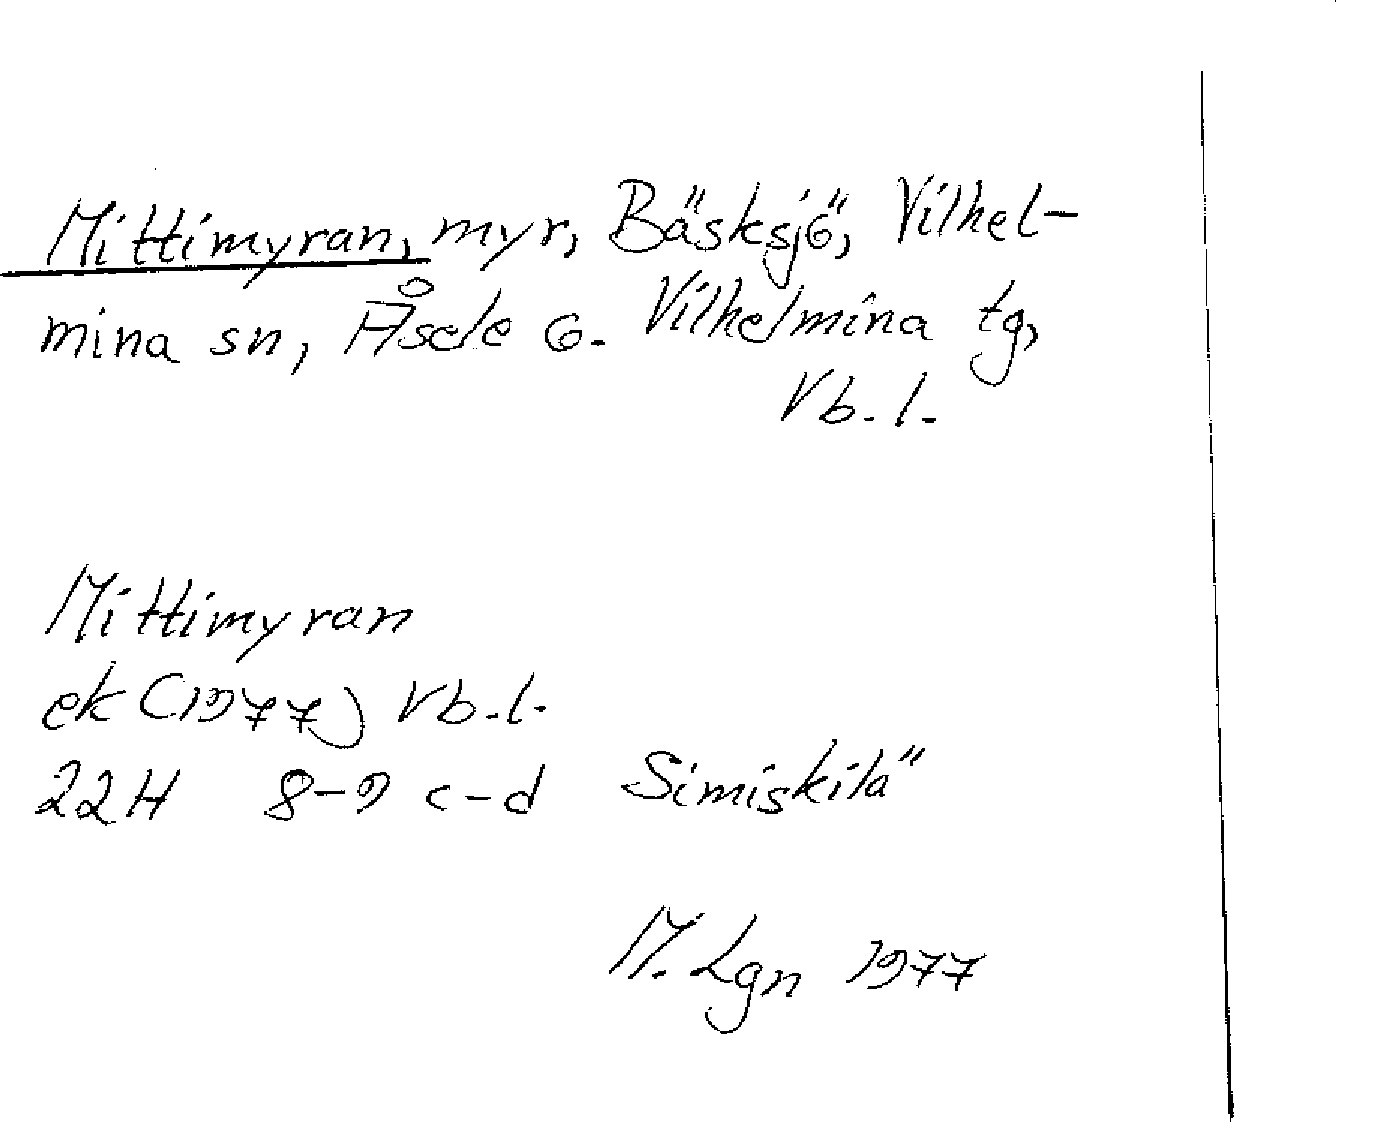 Mittimyran, myr, Bäsksjö, Vilhel-
mina sn, Åsele o. Vilhelmina tg,
Vb. l.
Mittimyran
ek (1977) Vb. l.
22H 8-9 c-d Simiskilä
M. Lgn 1977